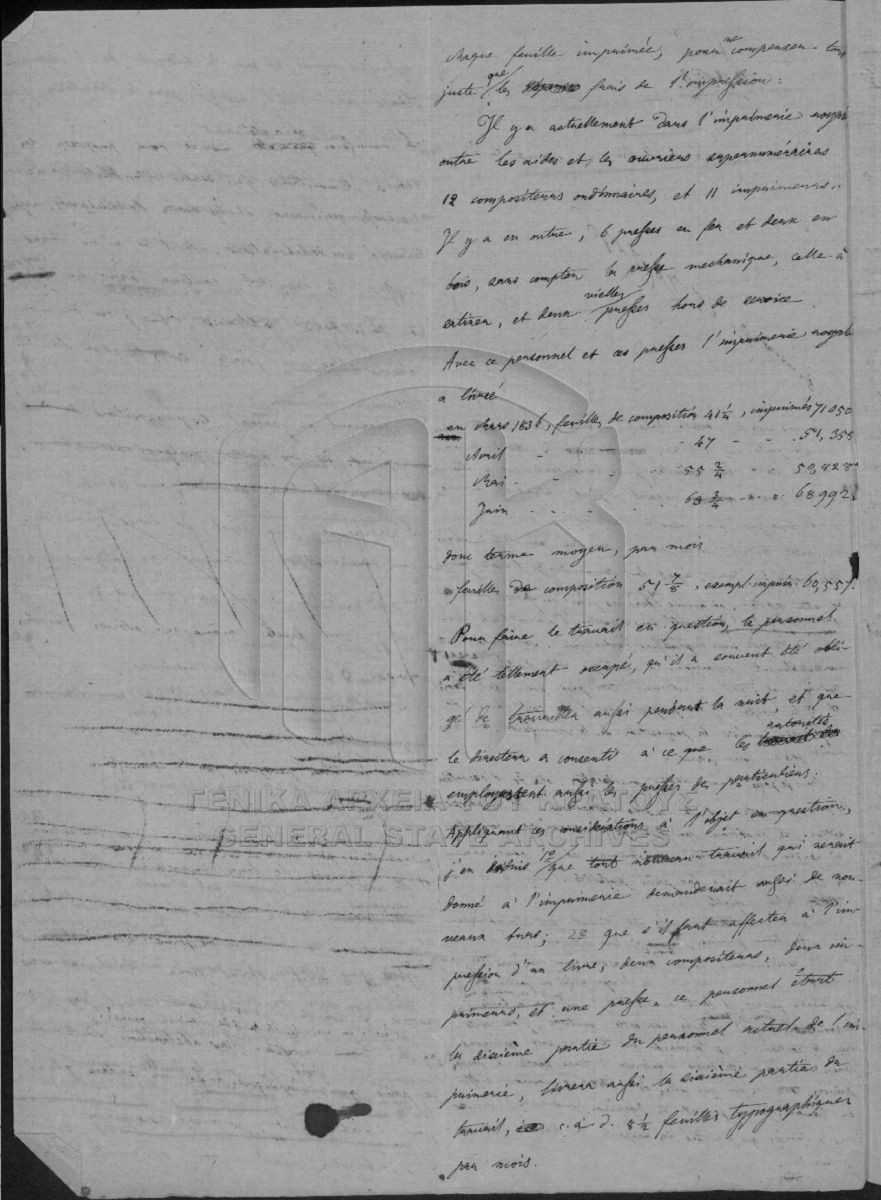 chaque feuille imprimée, pour ne compenser tout
juste que les frais de l'impression.
Il y a actuellement dans l'imprimerie royale
outre les aides et les ouvriers supernuméraires
12 compositeurs ordinaires, et 11 imprimeurs.
Il y a en outre, 6 presses en fer et deux en
bois, sans compter la presse mechanique, celle à
satiner, et deux vielles presses hors de service.
Avec ce personnel et ces presses l'imprimerie royale
a livré
en Mars 1836, feuilles de composition 41 1/4, imprimés 71050
Avril - - - 47 - - 51,358
Mai - - - 55 3/4 - - 50,828
Juin - - - 63 3/4 - - 68992.
donc terme moyen, par mois
feuilles de composition 51 7/8, exempl. imprim. 60,557.
Pour faire le travail en question, le personnel
a été tellement occupé, qu'il a souvent été obli-
gé de travailler aussi pendant la nuit et que
le directeur a consenti à ce que les autorités
employassent aussi les presses des particuliers.
Appliquant ces considérations à l'objet en question,
j'en déduis 1º que tout nouveau travail qui serait
donné à l'imprimerie demanderait aussi de nou-
veaux bras; 2º que s'il faut affecter à l'im-
pression d'un livre, deux compositeurs, deux im-
primeurs, et une presse, ce personnel étant
la sixième partie du personnel actuel de l'im-
primerie, livrera aussi la sixième partie du
travail, c. à d. 8 1/2 feuilles typographiques
par mois.
ΓΕΝΙΚΑ ΑΡΧΕΙΑ ΤΟΥ ΚΡΑΤΟΥΣ
GENERAL STATE ARCHIVES